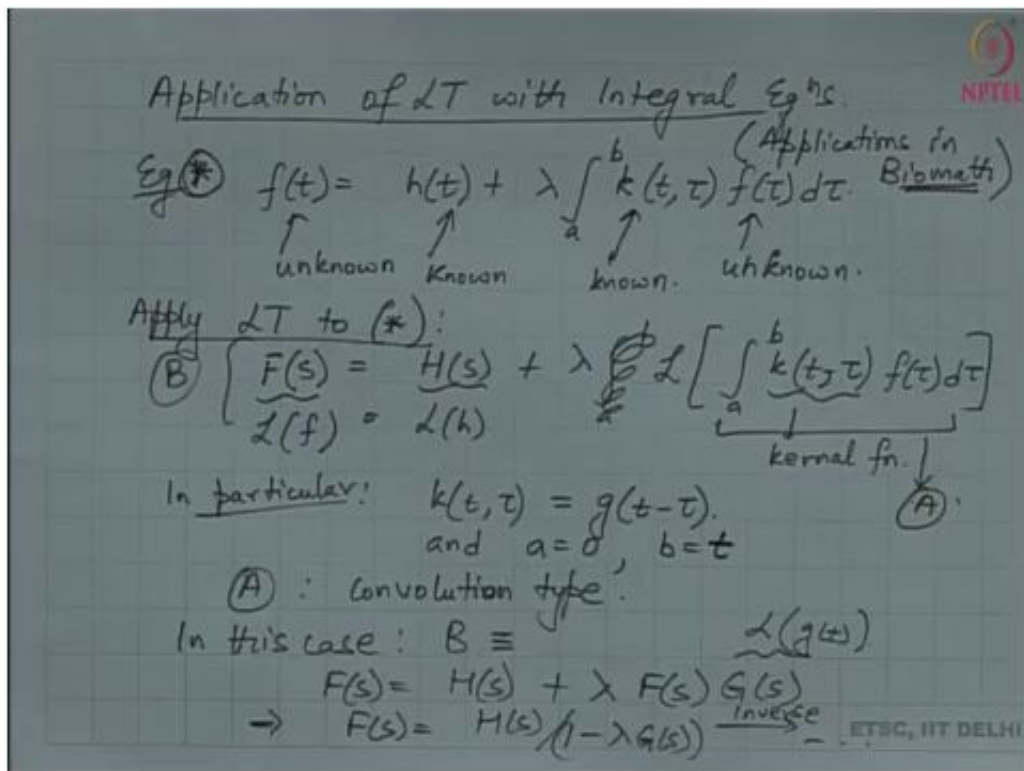 NPTEL
Application of LT with Integral Eqns.
(Applications in Biomath)
Eg (*) f(t) = h(t) + λ ∫_a^b k(t, τ) f(τ) dτ.
unknown known known. unknown.
Apply LT to (*):
(B) [ F(s) = H(s) + λ L [ ∫_a^b k(t, τ) f(τ) dτ ]
L(f) = L(h)
kernal fn. (A).
In particular: k(t, τ) = g(t-τ).
and a=0, b=t
(A) : convolution type.
In this case : B ≡ L(g(t))
F(s) = H(s) + λ F(s) G(s)
→ F(s) = H(s)/(1 - λ G(s)) inverse → - . . .
ETSC, IIT DELHI